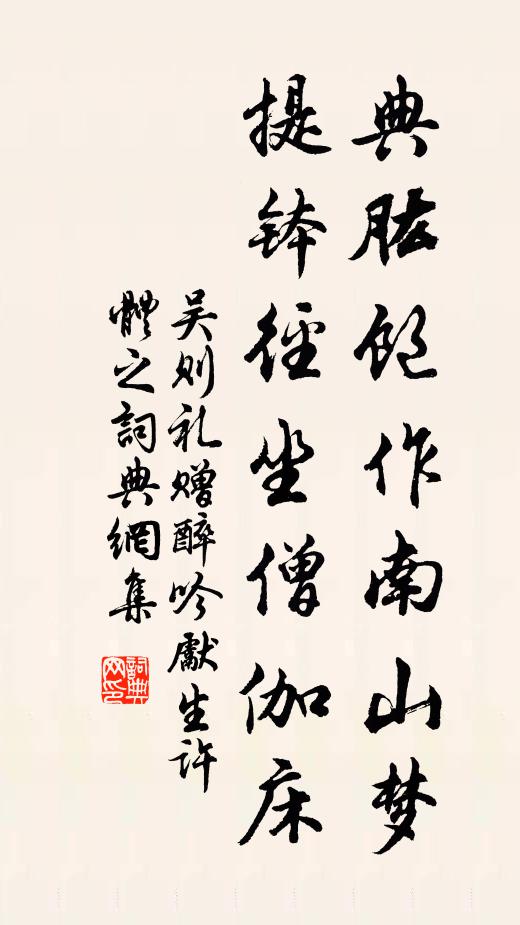 典肱飽作南山梦
提鉢徑坐僧伽床
吴则礼赠醉吟獻生许
體之詞典網集
詞典网印